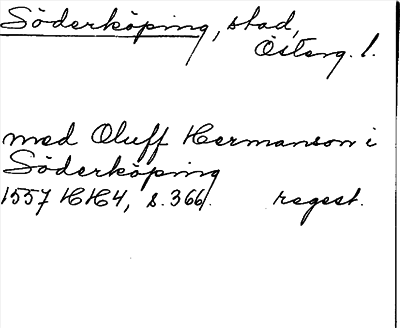 Söderköping, stad,
Österg. l.
med Oluff Hermanson i
Söderköping
1557 HH4, s. 366. regest.